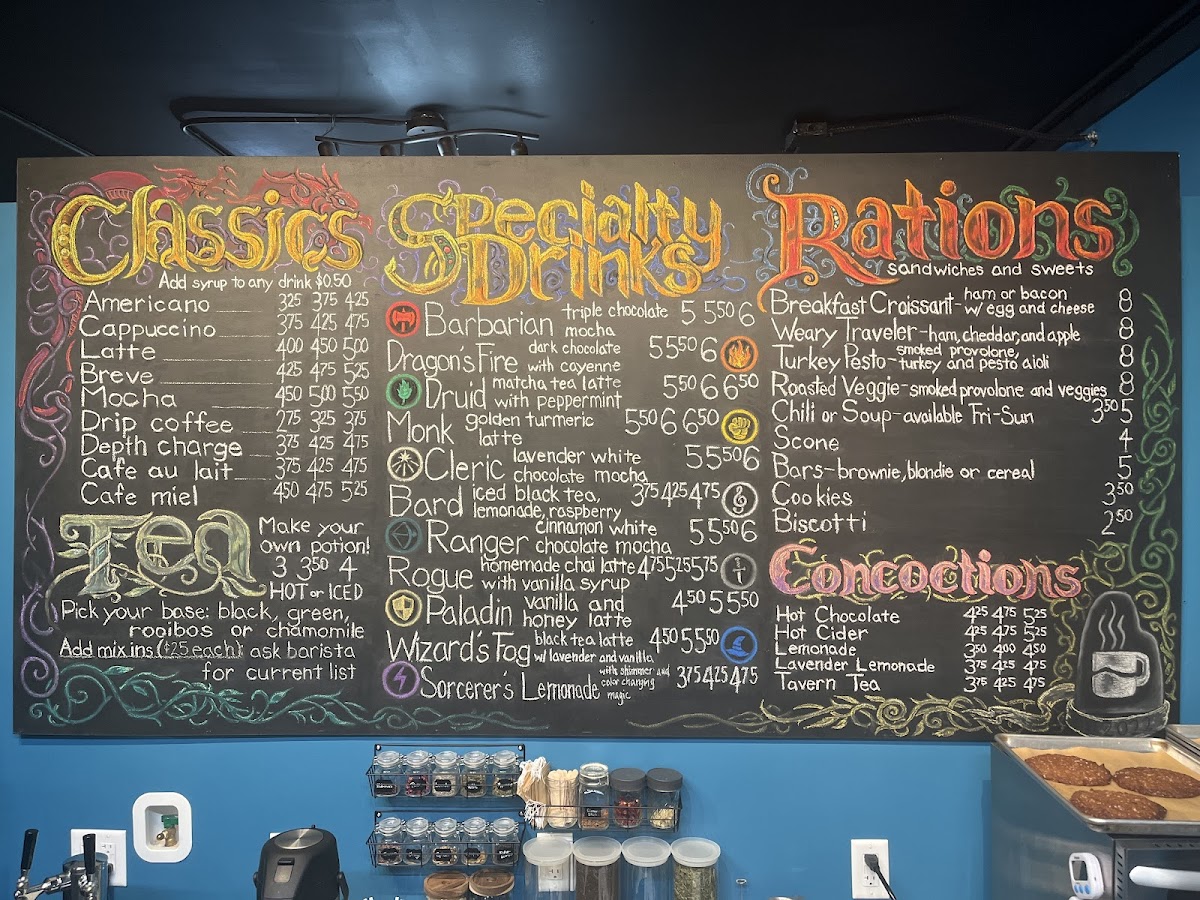 Classics
Add syrup to any drink $0.50
Americano 325 375 425
Cappuccino 375 425 475
Latte 400 450 500
Breve 425 475 525
Mocha 450 500 550
Drip coffee 275 325 375
Depth charge 375 425 475
Cafe au lait 375 425 475
Cafe miel 450 475 525
Tea
Make your
own potion!
3 350 4
HOT or ICED
Pick your base: black, green,
rooibos or chamomile
Add mix ins ($.25 each): ask barista
for current list
Specialty
Drinks
Barbarian triple chocolate mocha 5 550 6
Dragon's Fire dark chocolate with cayenne 5 550 6
Druid matcha tea latte with peppermint 550 6 650
Monk golden turmeric latte 550 6 650
Cleric lavender white chocolate mocha 5 550 6
Bard iced black tea, lemonade, raspberry 375 425 475
Ranger cinnamon white chocolate mocha 5 550 6
Rogue homemade chai latte with vanilla syrup 475 525 575
Paladin vanilla and honey latte 450 5 550
Wizard's Fog black tea latte w/ lavender and vanilla 450 5 550
Sorcerer's Lemonade with shimmer and color changing magic 375 425 475
Rations
sandwiches and sweets
Breakfast Croissant - ham or bacon w/ egg and cheese 8
Weary Traveler - ham, cheddar, and apple 8
Turkey Pesto - smoked provolone, turkey and pesto aioli 8
Roasted Veggie - smoked provolone and veggies 8
Chili or Soup - available Fri-Sun 350 5
Scone 4
Bars - brownie, blondie or cereal 5
Cookies 350
Biscotti 250
Concoctions
Hot Chocolate 425 475 525
Hot Cider 425 475 525
Lemonade 350 400 450
Lavender Lemonade 375 425 475
Tavern Tea 375 425 475